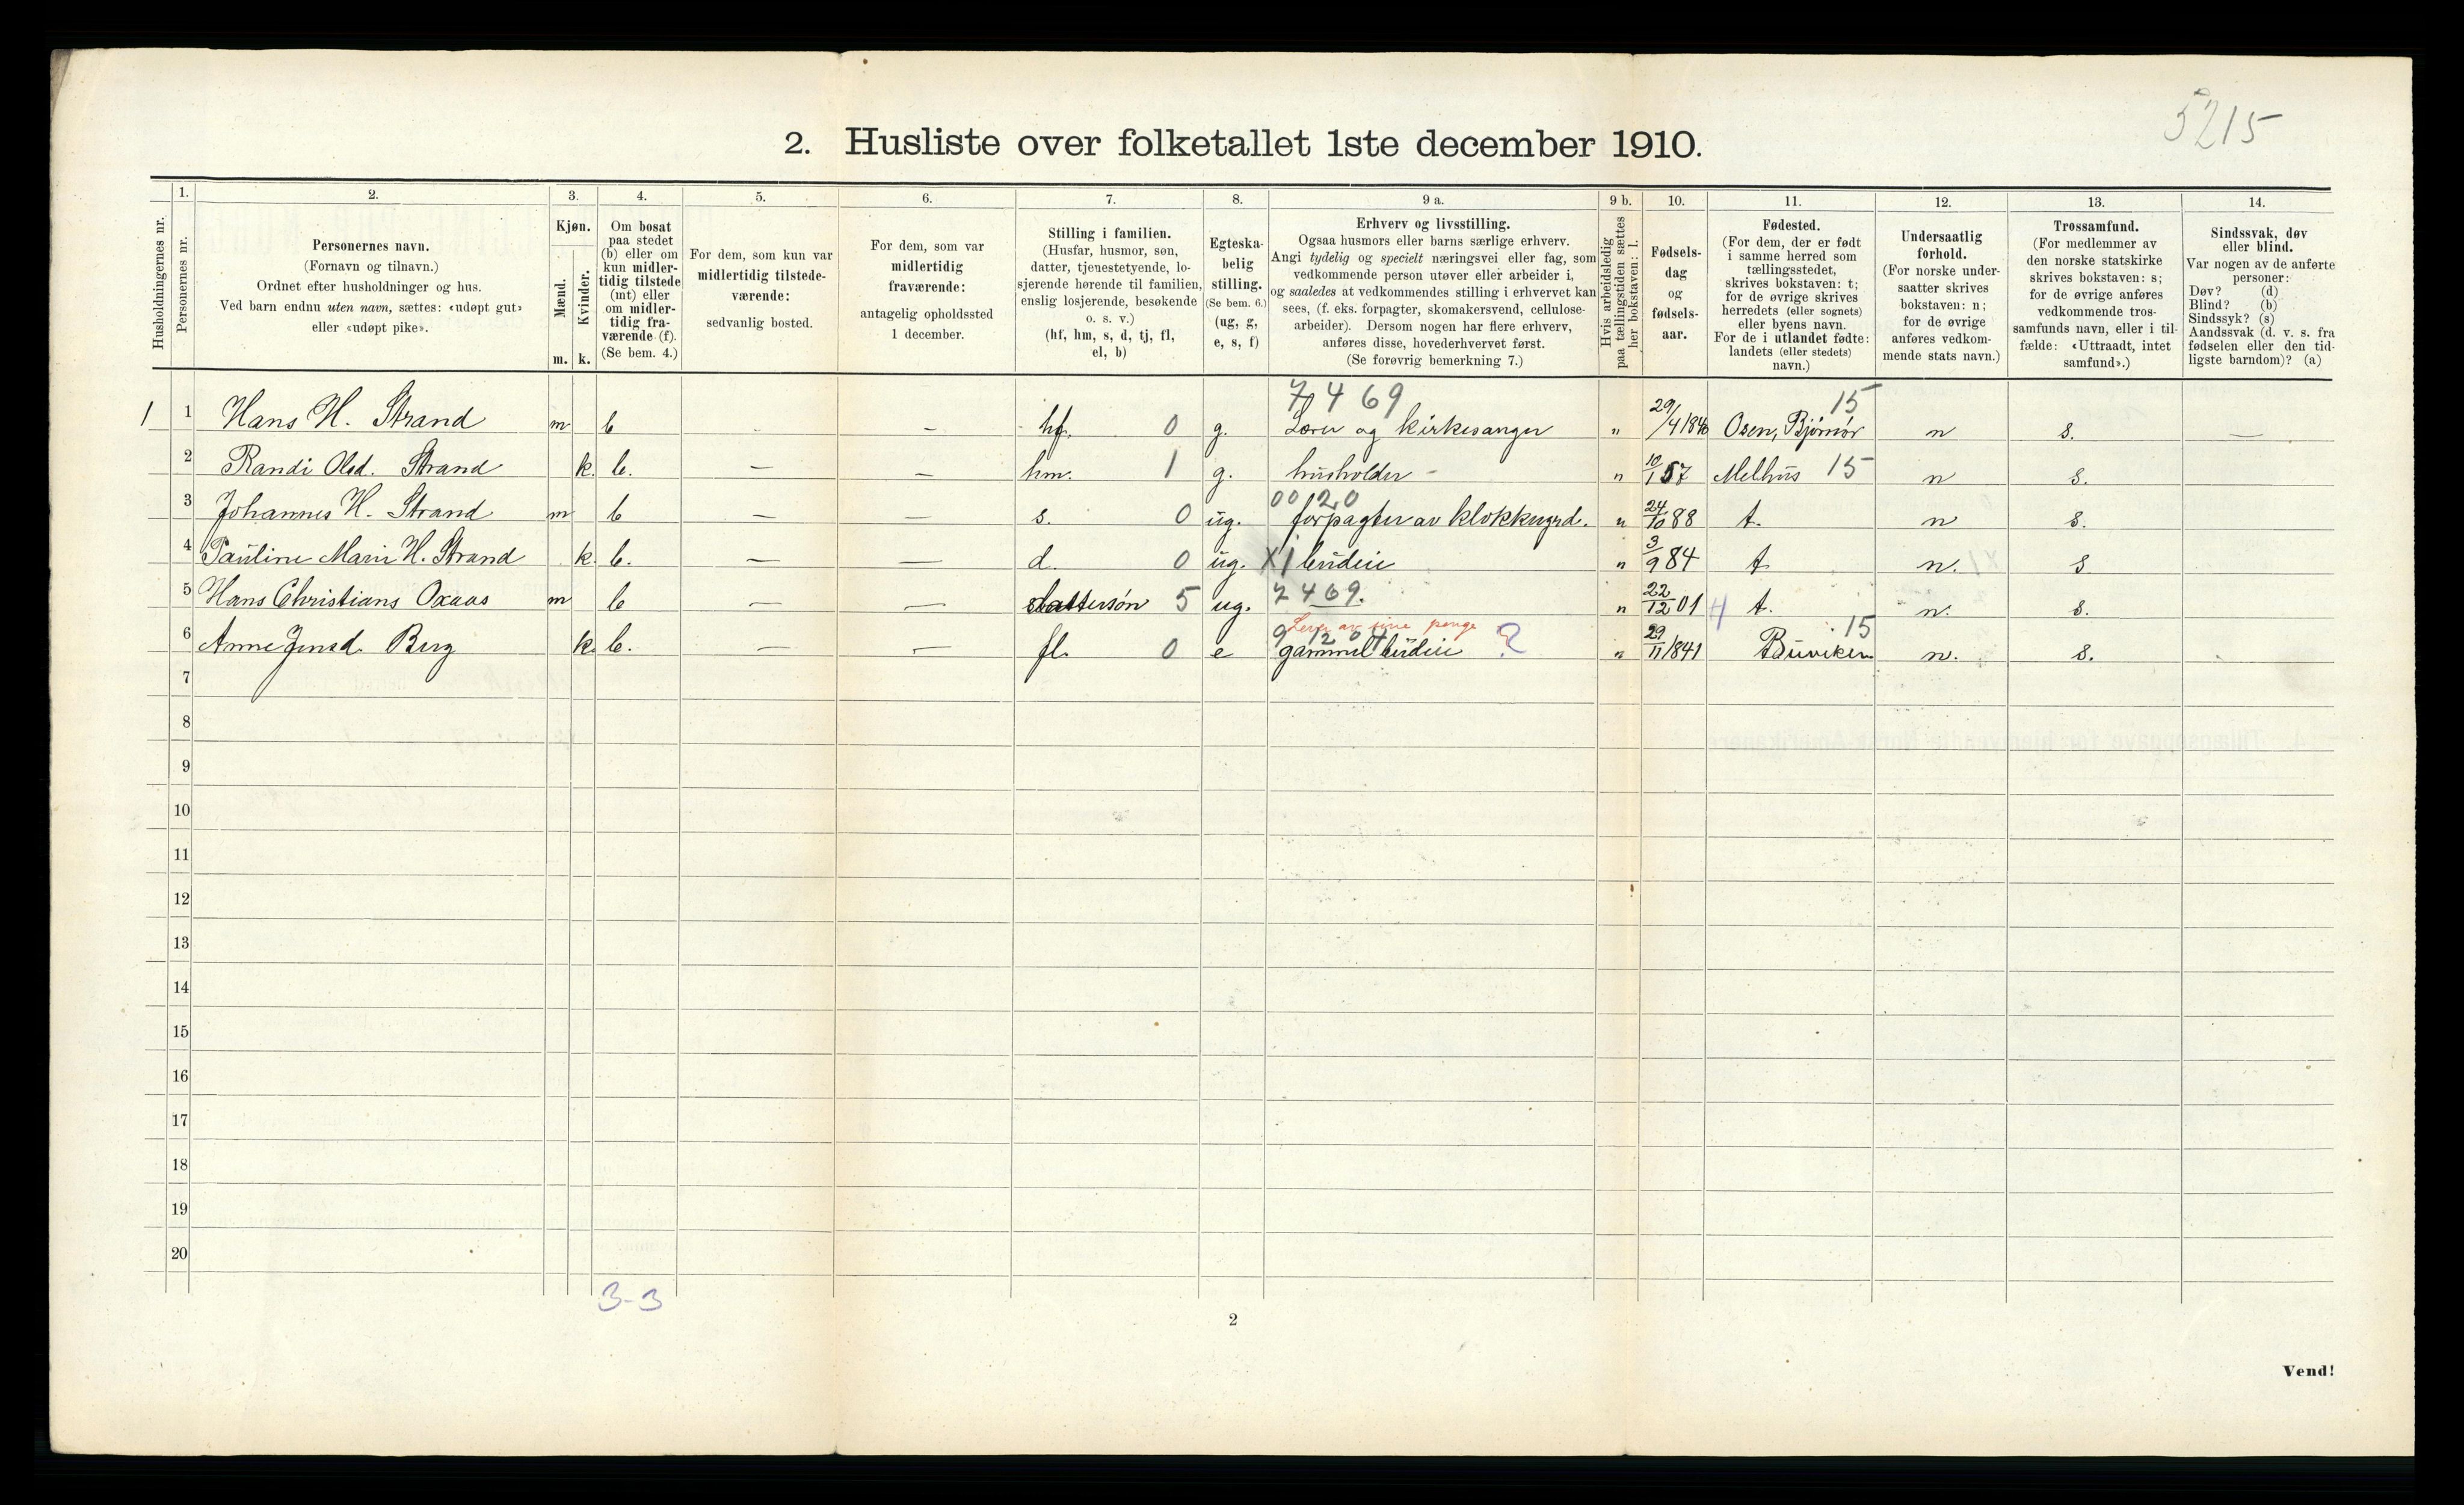 5215
2. Husliste over folketallet 1ste december 1910.
Husholdningernes nr.
1.
Personernes nr.
2.
Personernes navn.
(Fornavn og tilnavn.)
Ordnet efter husholdninger og hus.
Ved barn endnu uten navn, sættes: «udøpt gut»
eller «udøpt pike».
3.
Kjøn.
Mænd.
Kvinder.
m. k.
4.
Om bosat
paa stedet
(b) eller om
kun midler-
tidig tilstede
(mt) eller
om midler-
tidig fra-
værende (f).
(Se bem. 4.)
5.
For dem, som kun var
midlertidig tilstede-
værende:
sedvanlig bosted.
6.
For dem, som var
midlertidig
fraværende:
antagelig opholdssted
1 december.
7.
Stilling i familien.
(Husfar, husmor, søn,
datter, tjenestetyende, lo-
sjerende hørende til familien,
enslig losjerende, besøkende
o. s. v.)
(hf, hm, s, d, tj, fl,
el, b)
8.
Egteska-
belig
stilling.
(Se bem. 6.)
(ug, g,
e, s, f)
9 a.
Erhverv og livsstilling.
Ogsaa husmors eller barns særlige erhverv.
Angi tydelig og specielt næringsvei eller fag, som
vedkommende person utøver eller arbeider i,
og saaledes at vedkommendes stilling i erhvervet kan
sees, (f. eks. forpagter, skomakersvend, cellulose-
arbeider). Dersom nogen har flere erhverv,
anføres disse, hovederhvervet først.
(Se forøvrig bemerkning 7.)
9 b.
Hvis arbeidsledig
paa tællingstiden sættes
her bokstaven: l.
10.
Fødsels-
dag
og
fødsels-
aar.
11.
Fødested.
(For dem, der er født
i samme herred som
tællingsstedet,
skrives bokstaven: t;
for de øvrige skrives
herredets (eller sognets)
eller byens navn.
For de i utlandet fødte:
landets (eller stedets)
navn.)
12.
Undersaatlig
forhold.
(For norske under-
saatter skrives
bokstaven: n;
for de øvrige
anføres vedkom-
mende stats navn.)
13.
Trossamfund.
(For medlemmer av
den norske statskirke
skrives bokstaven: s;
for de øvrige anføres
vedkommende tros-
samfunds navn, eller i til-
fælde: «Uttraadt, intet
samfund».)
14.
Sindssvak, døv
eller blind.
Var nogen av de anførte
personer:
Døv? (d)
Blind? (b)
Sindssyk? (s)
Aandssvak (d. v. s. fra
fødselen eller den tid-
ligste barndom)? (a)
7469 15
1 1 Hans H. Strand m b - - hf. 0 g. Lærer og kirkesanger " 29/4 1840 Osen, Bjørnør n s. —
2 Randi Olsd. Strand k. b. — — hm. 1 g. husholder - " 10/1 57 Melhus 15 n s.
00 20
3 Johannes H. Strand m b — — s. 0 ug. forpagter av klokkergrd. " 24/10 88 t. n s.
4 Pauline Marie H. Strand k. b. — — d. 0 ug. X1 budeie " 3/9 84 t. n. s.
5 Hans Christians Oxaas m b — — dattersøn 5 ug. 7469. " 22/12 01 t. n. s.
Lever av sine penge 15
9 12 04
6 Anne Jensd. Berg k. b. — — fl. 0 e gammel budeie ? " 29/11 1841 Buviken n. s.
7
8
9
10
11
12
13
14
15
16
17
18
19
20
3-3
2
Vend!